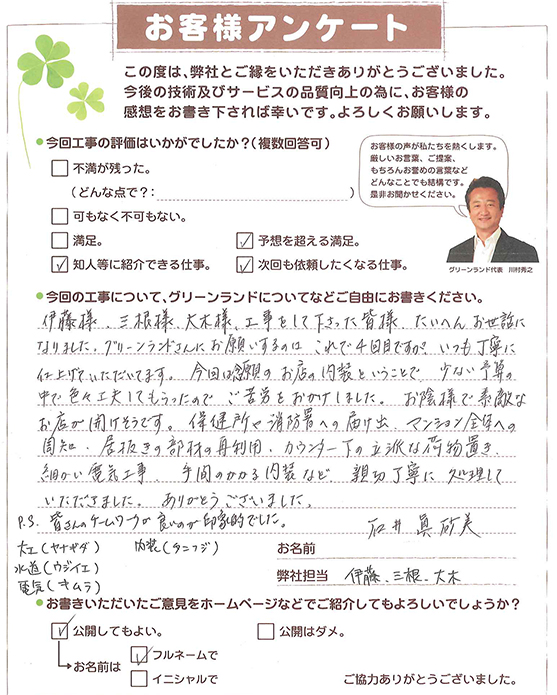 お客様アンケート
この度は、弊社とご縁をいただきありがとうございました。
今後の技術及びサービスの品質向上の為に、お客様の
感想をお書き下されば幸いです。よろしくお願いします。
●今回工事の評価はいかがでしたか?(複数回答可)
□不満が残った。
(どんな点で?: )
□可もなく不可もない。
□満足。 ☑予想を超える満足。
☑知人等に紹介できる仕事。 ☑次回も依頼したくなる仕事。
お客様の声が私たちを熱くします。
厳しいお言葉、ご提案、
もちろんお誉めの言葉など
どんなことでも結構です。
是非お聞かせください。
グリーンランド代表 川村秀之
●今回の工事について、グリーンランドについてなどご自由にお書きください。
伊藤様、三根様、大木様、工事をして下さった皆様、たいへんお世話に
なりました。グリーンランドさんにお願いするのは これで4回目ですが、いつも丁寧に
仕上げていただいてます。今回は念願のお店の内装ということで、少ない予算の
中で色々工夫してもらったので ご苦労をおかけしました。お陰様で素敵な
お店が開けそうです。保健所や消防署への届け出、マンション全体への
周知、居抜きの部材の再利用、カウンター下の立派な荷物置き、
細かい電気工事、手間のかかる内装など、親切丁寧に処理して
いただきました。ありがとうございました。
P.S. 皆さんのチームワークが良いのが印象的でした。
石井 真砂美
大工(ヤナギダ) 内装(タニフジ)
水道(ウジイエ)
電気(キムラ)
お名前
弊社担当 伊藤、三根、大木
●お書きいただいたご意見をホームページなどでご紹介してもよろしいでしょうか?
☑公開してもよい。 □公開はダメ。
→お名前は ☑フルネームで
□イニシャルで
ご協力ありがとうございました。